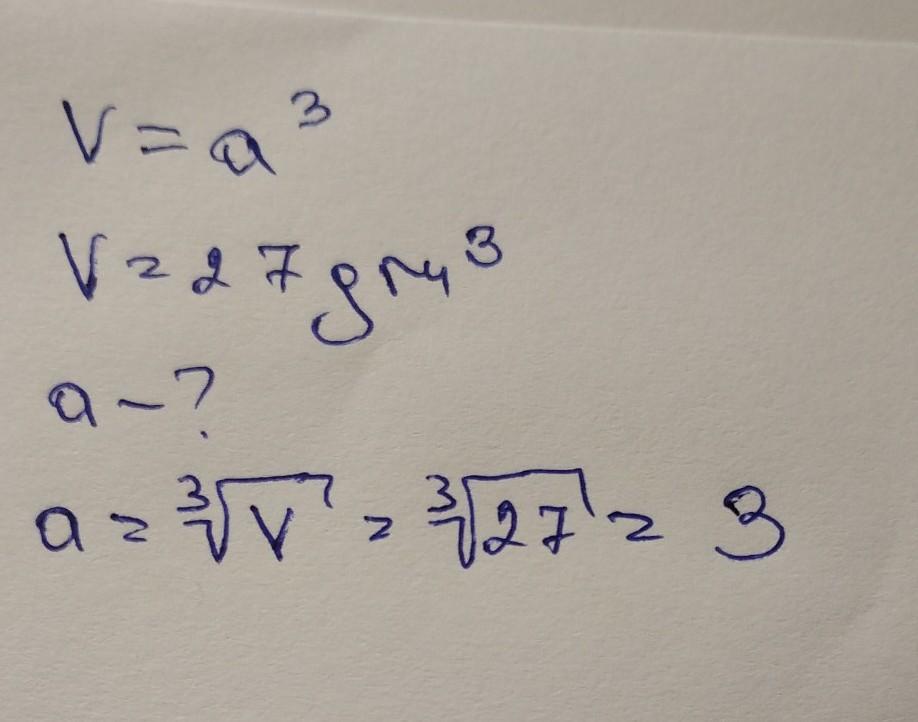 V = a³
V = 27 дм³
a - ?
a = ∛V = ∛27 = 3